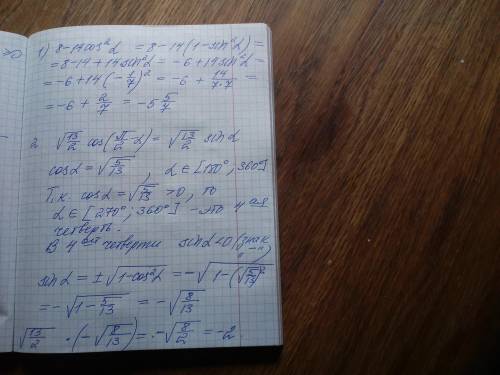 1) 8-14cos²α = 8-14(1-sin²α) =
= 8-14+14sin²α = -6+14sin²α =
= -6+14(-1/7)² = -6 + 14/7·7 =
= -6 + 2/7 = -5 5/7
2. √13/2 cos(π/2-α) = √13/2 sinα
cosα = √5/13 , α ∈ [180°, 360°]
Т.к. cosα = √5/13 >0, то
α ∈ [270°, 360°] - это 4 ая
четверть.
В 4 ой четверти sinα<0 (знак
"-")
sinα = ±√1-cos²α = -√1-(√5/13)²
= -√1-5/13 = -√8/13
√13/2 · (-√8/13) = -√8/2 = -2